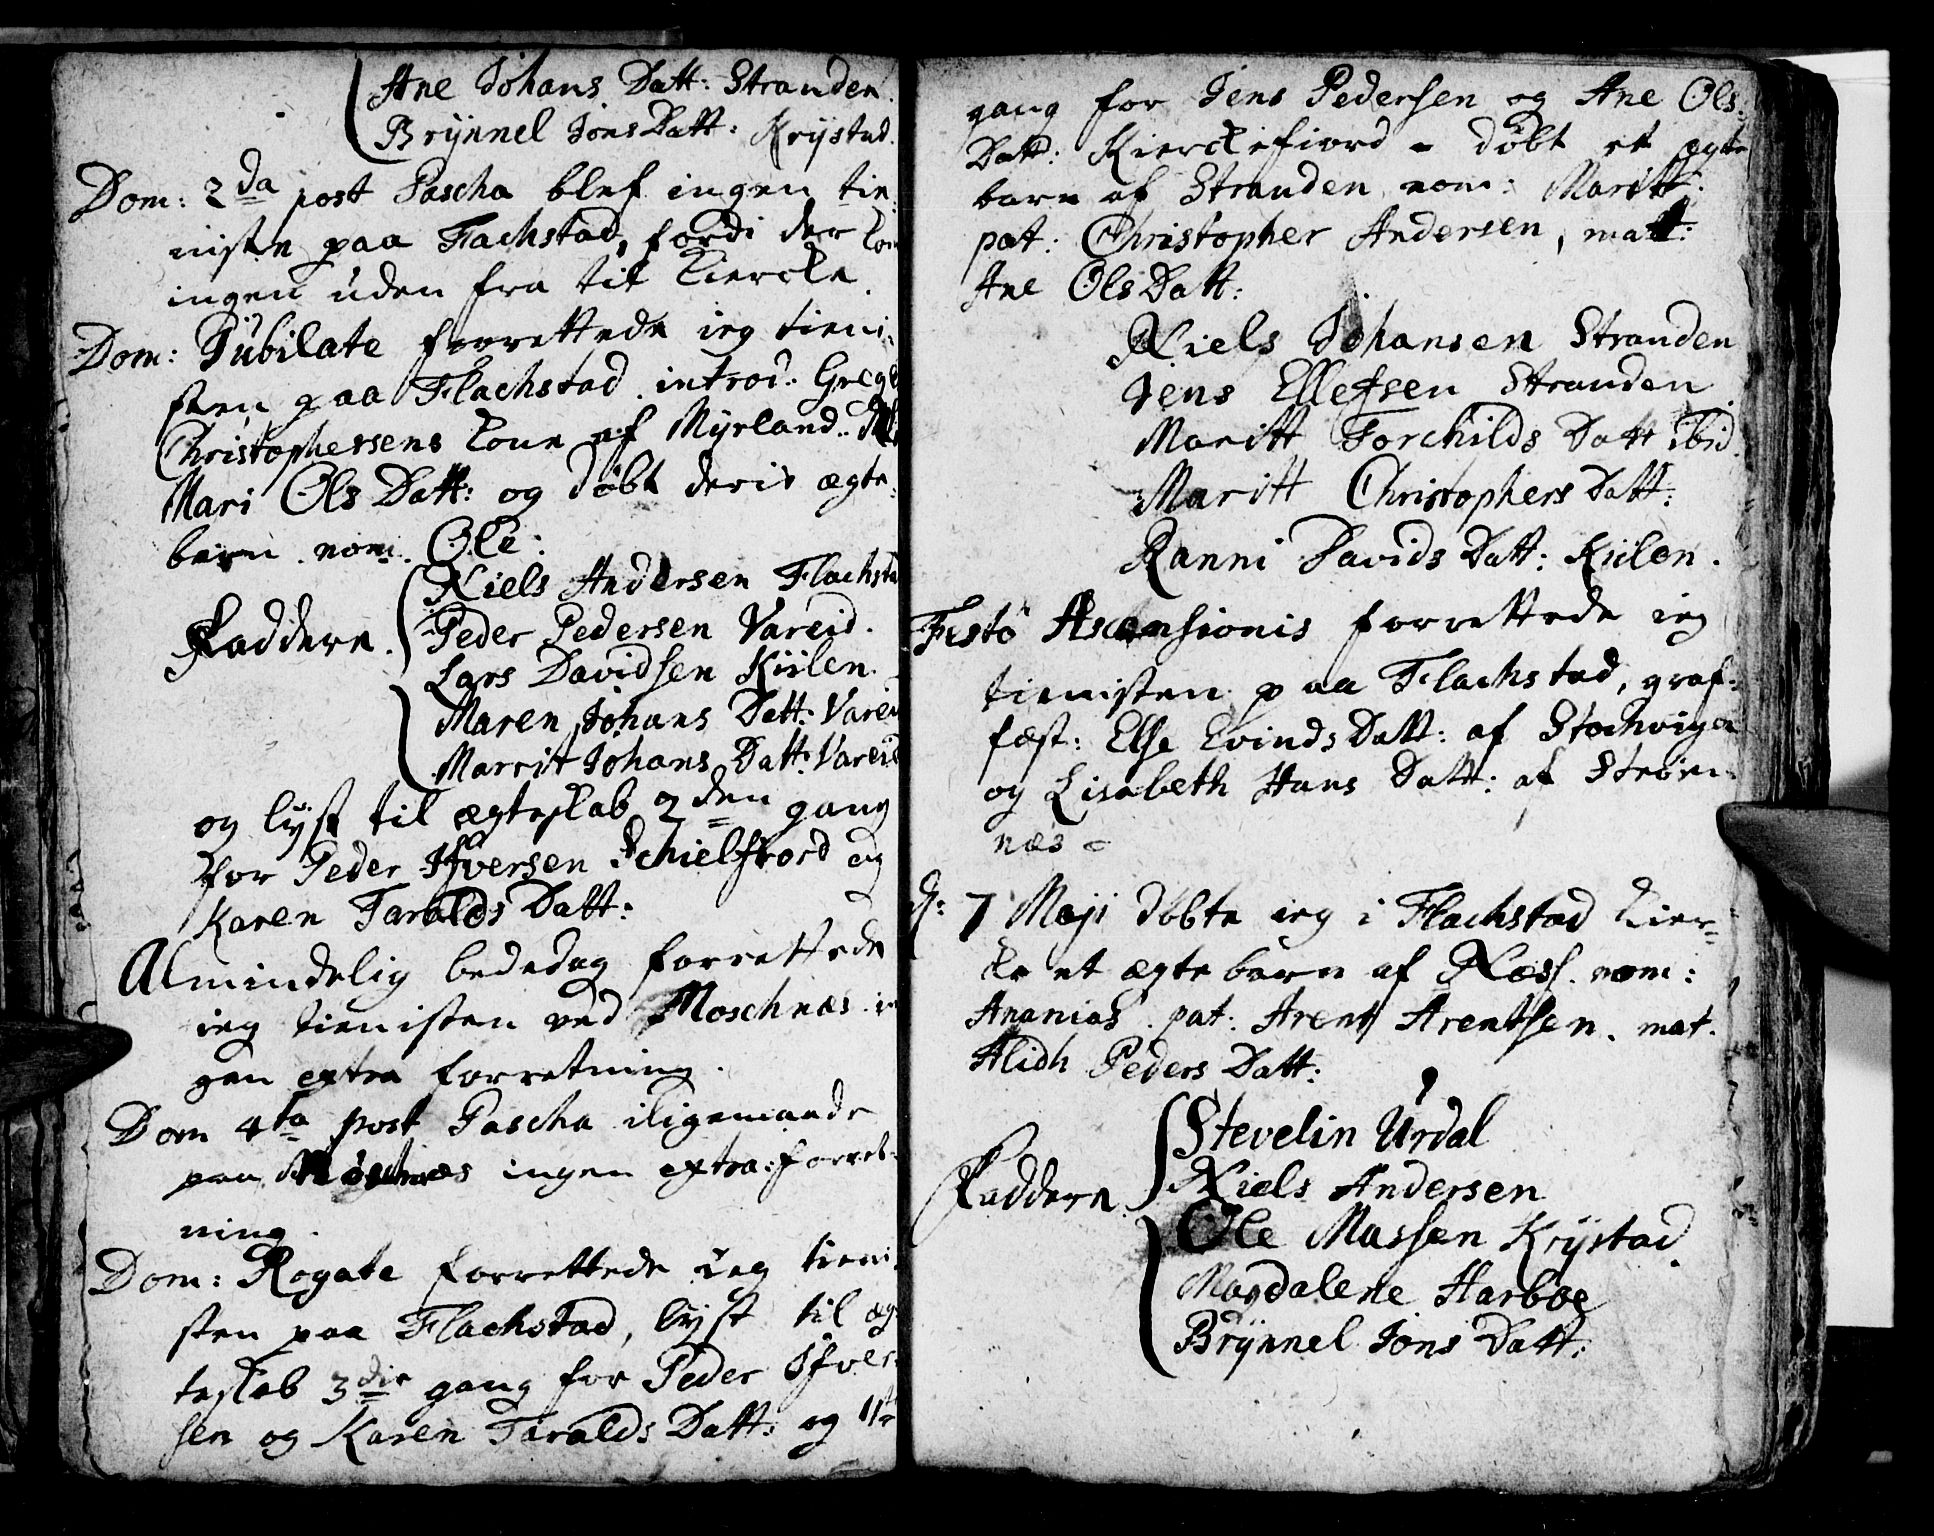 Ane Johans Datt: Stranden.
Brÿnnel Jons Datt: Krÿstad.
Dom: 2da post Pascha blef ingen tie-
niste paa Flachstad, fordi der kom
ingen uden fra til kiercke.
Dom: Jubilate forrettede ieg tieni-
sten paa Flachstad. introd: Greger
Christophersens kone af Myrland.
Mari Ols Datt: og døbt deris ægte-
barn. nom. Ole:
Niels Andersen Flachsta
Faddere. Peder Pedersen Vareid.
Lars Davidsen Kiilen.
Maren Johans Datt: Vareid
Marrit Johans Datt: Vareid
og lyst til ægteskab 2den gang
for Peder Ifversen Schielfiord og
Karen Taralds Datt:
Almindelig bededag forrettede
ieg tienisten ved Moschnæs. in
gen extra forretning.
Dom 4ta post Pascha iligemaade
paa Moschnæs ingen extra: forret-
ning.
Dom: Rogate forrettede ieg tieni-
sten paa Flachstad, lyst til æg-
teskab 3die gang for Peder Ifver-
sen og Karen Taralds Datt: og 1ste
gang for Jens Pedersen og Ane Ols-
Datt: Kierckefiord - døbt et ægte
barn af Stranden nom: Maritt:
pat: Christopher Andersen, matt:
Ane Ols Datt:
Niels Johansen Stranden
Jens Ellefsen Stranden
Maritt Torchilds Datt ibid.
Maritt Christophers Datt:
Ranni Davids Datt: Kiilen.
Festo Ascensionis forrettede ieg
tienisten paa Flachstad, graf-
fæst: Else Evinds Datt: af Stochvigen
og Lisabeth Hans Datt: af Strøm-
næs -
d: 7 Maji døbte ieg i Flachstad kier-
ke et ægte barn af Næss. nom:
Ananias. pat: Arent Arentsen. mat.
Alidh Peders Datt:
Stevelin Urdal
Faddere. Niels Andersen
Ole Massen Krÿstad.
Magdalene Harboe
Brÿnnel Jons Datt: